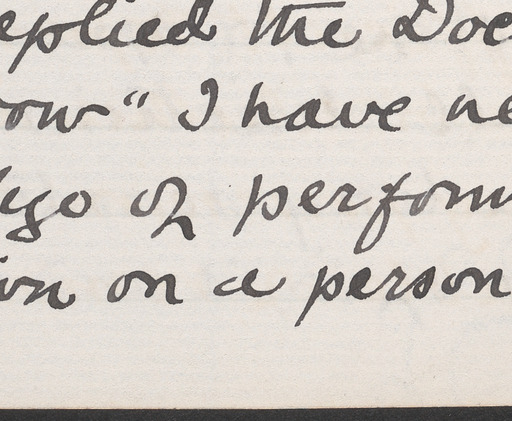 eplied the Doc
ow" I have ne
of perform
on a person